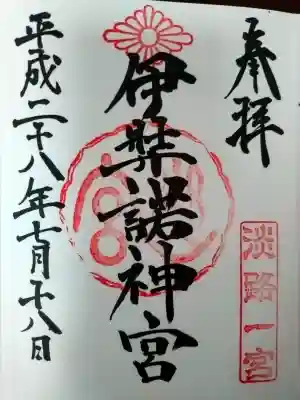 奉拝
淡路一宮
伊弉諾神宮
平成二十八年七月十八日